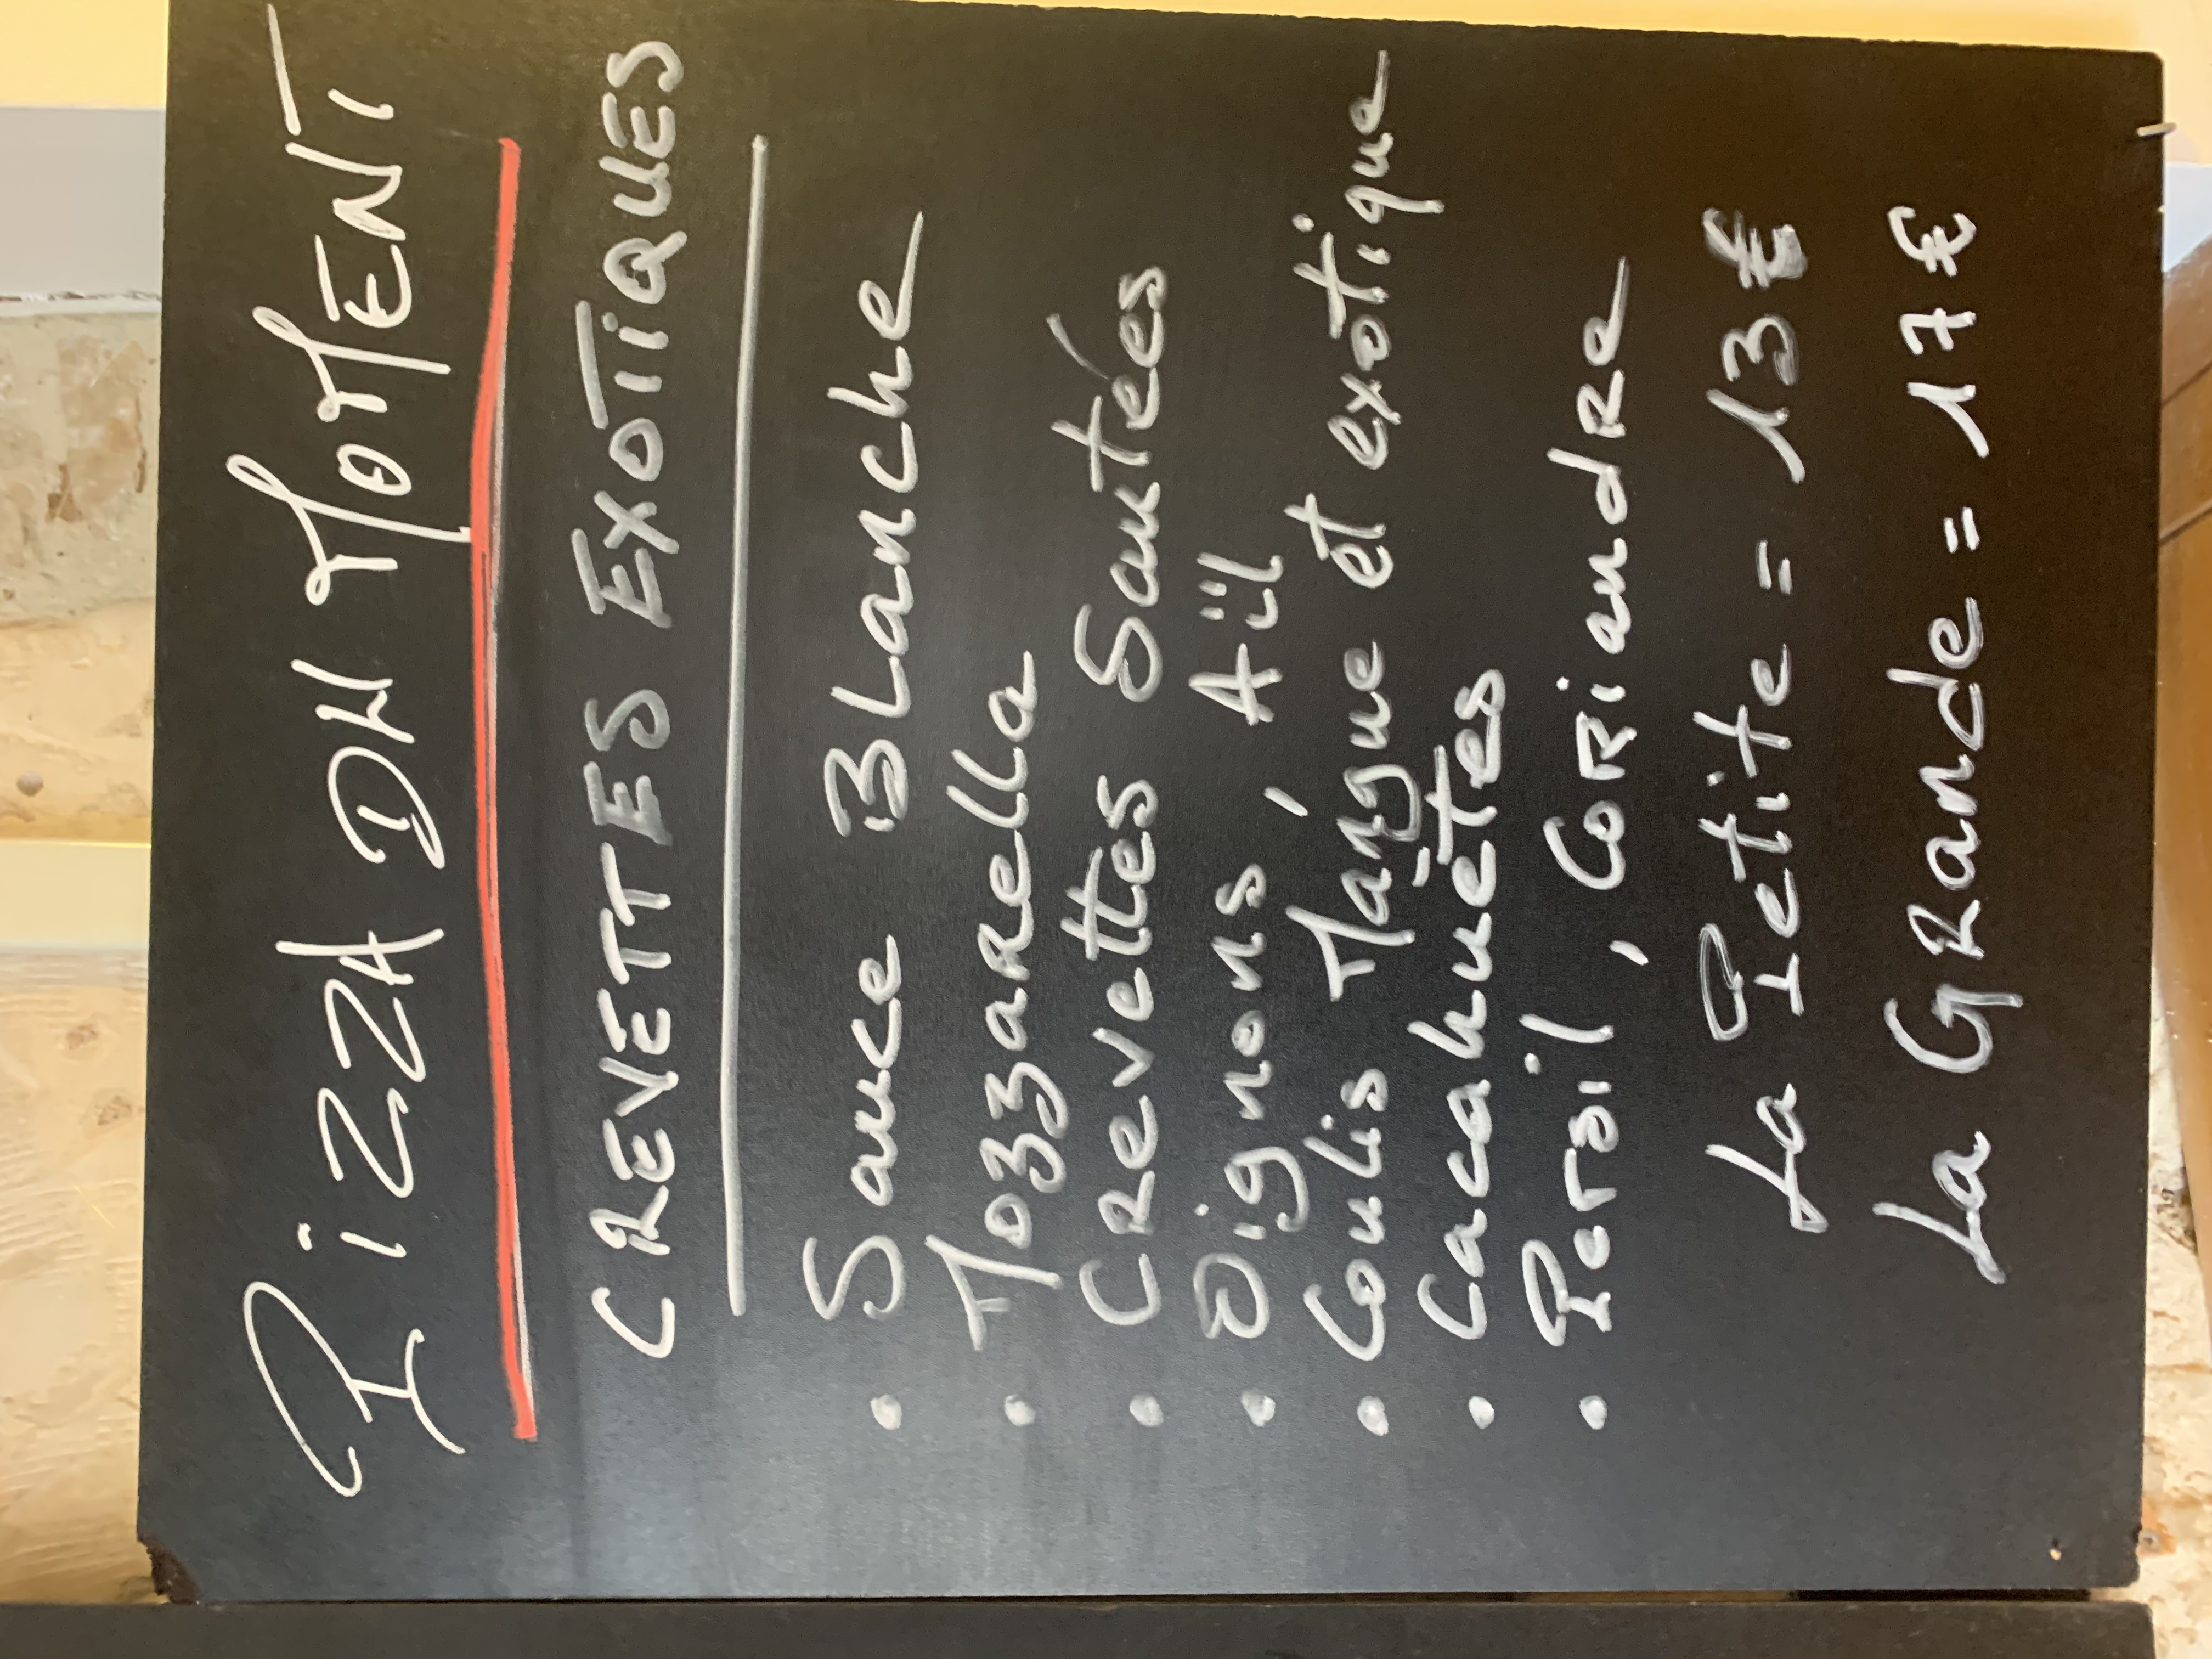 PiZZA DU MOMENT
CREVETTES EXOTiQUES
• Sauce BLanche
• Mozzarella
• Crevettes Sautés
• Oignons, Ail
• Coulis Mangue et exotique
• Cacahuètes
• Persil, Coriandre
La Petite = 13 €
La Grande = 17 €